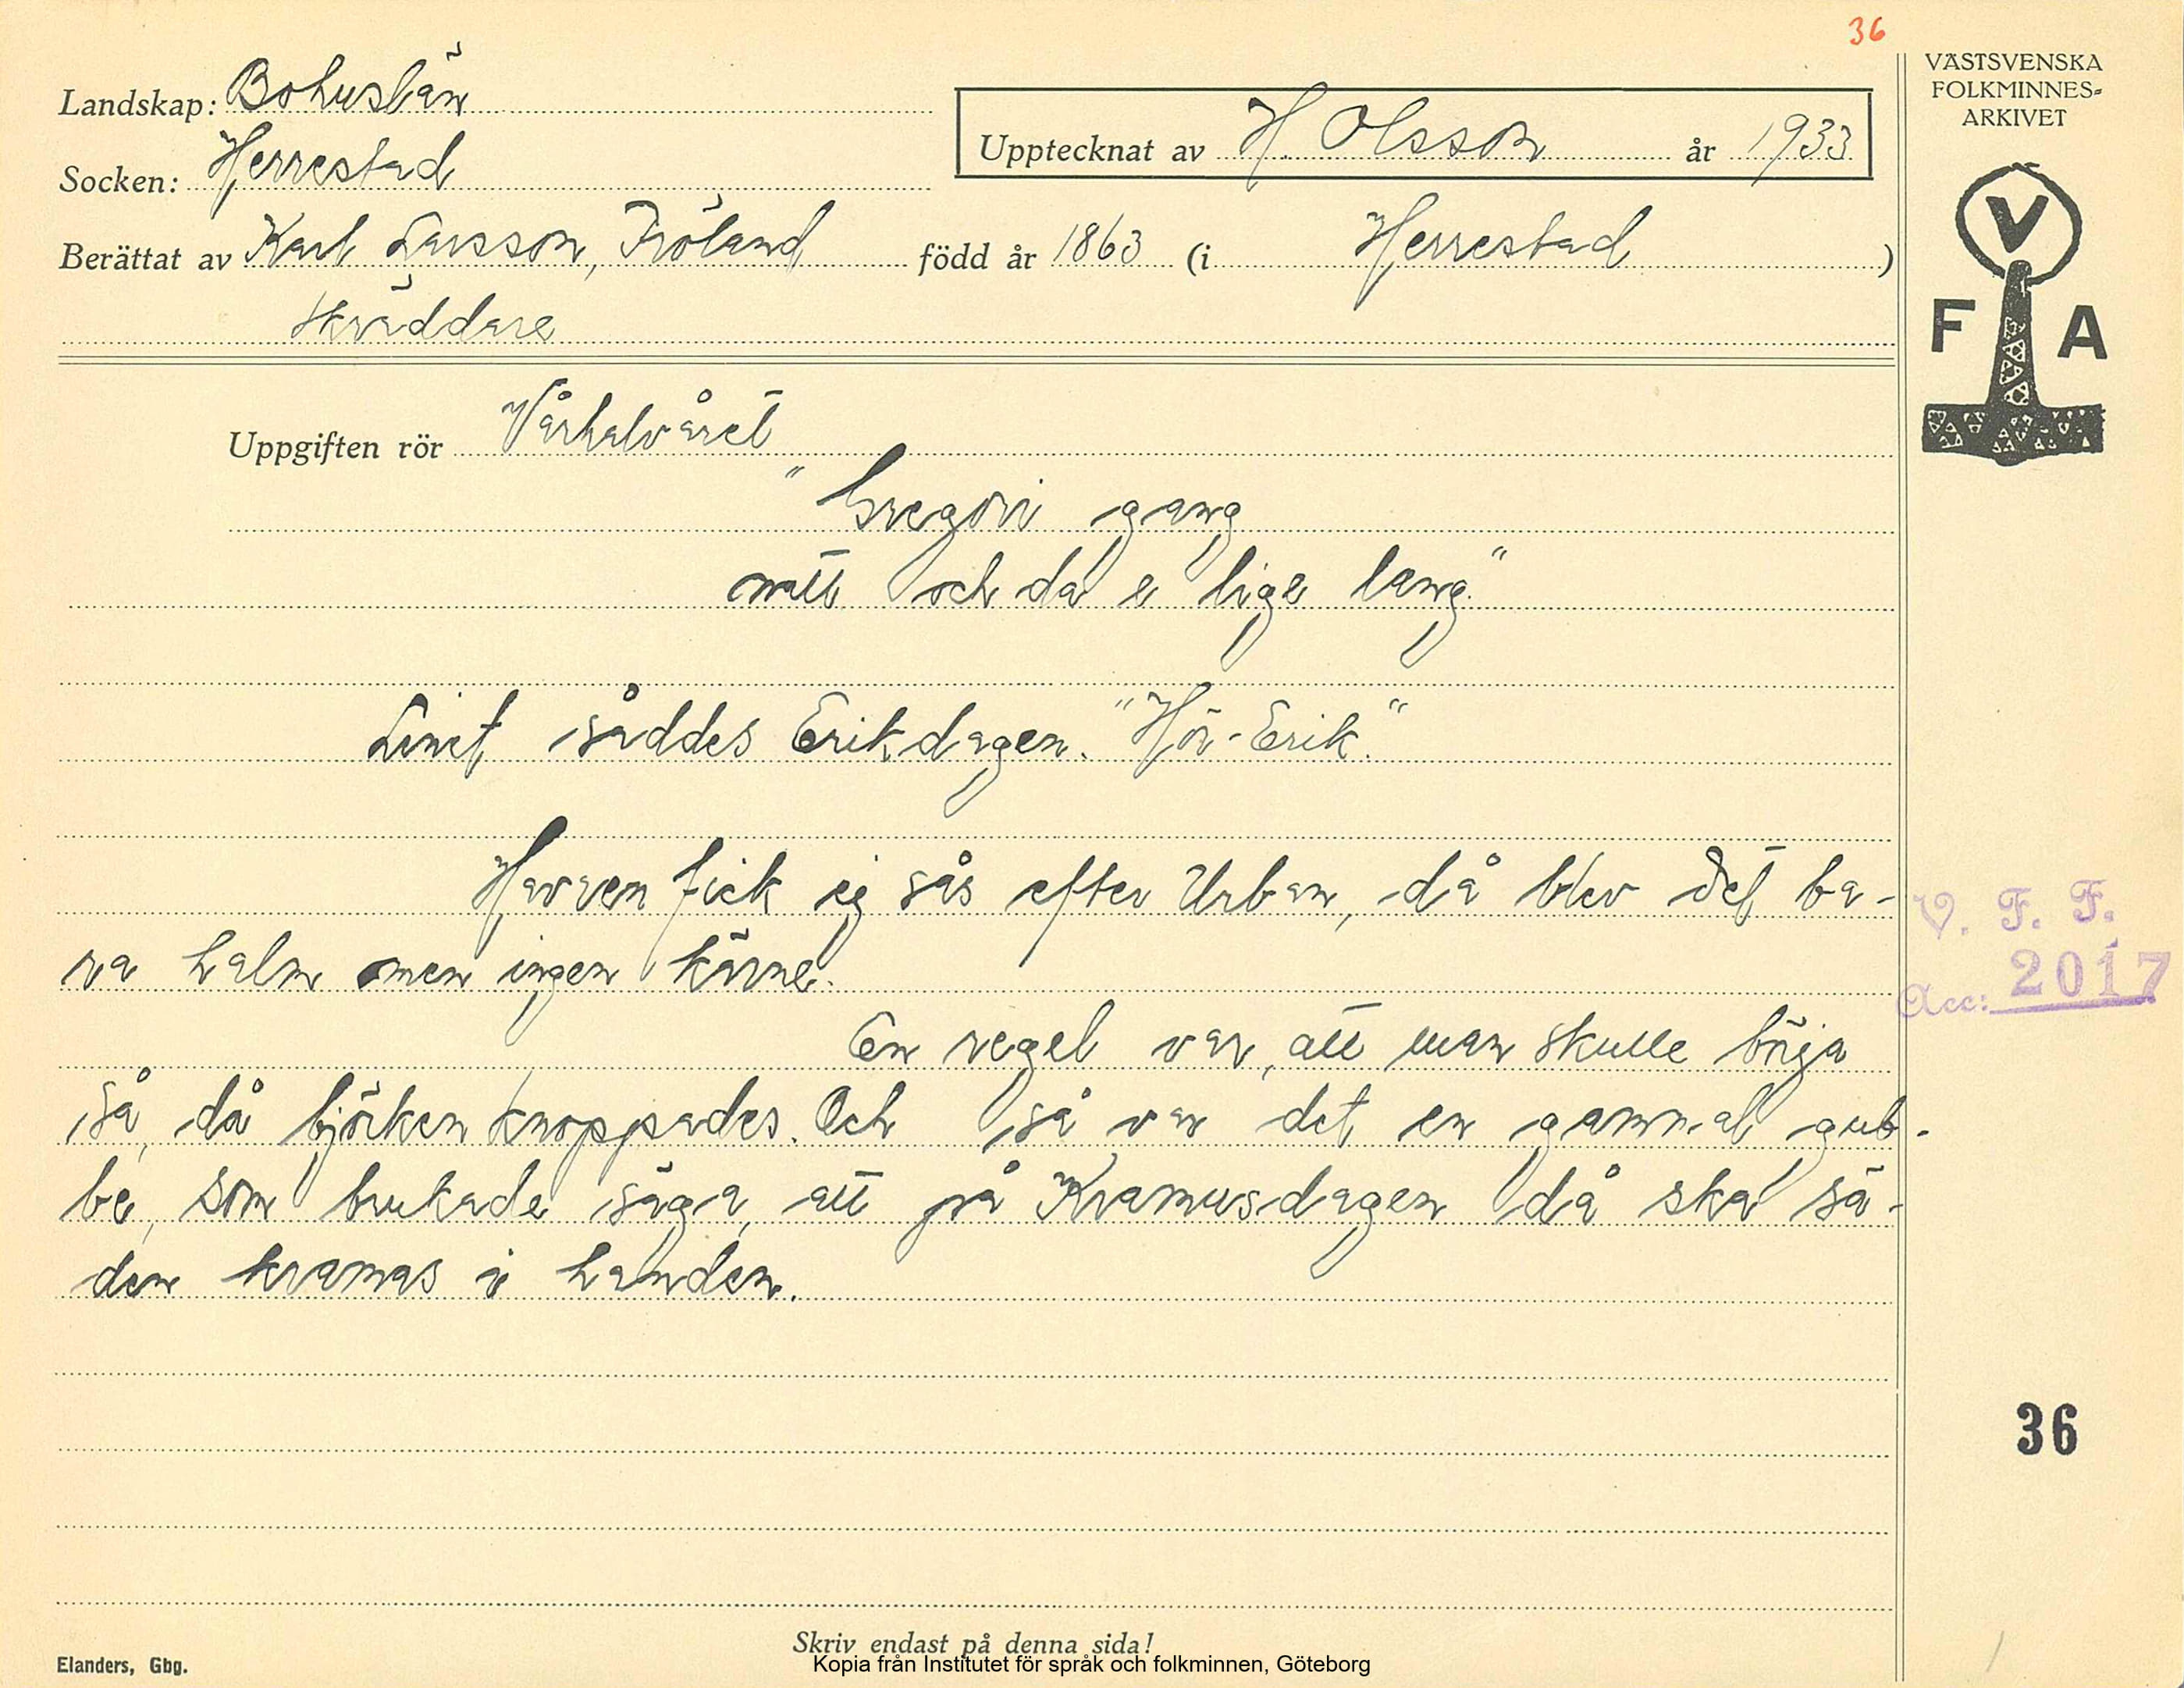 36
VÄSTSVENSKA
FOLKMINNES-
ARKIVET
Landskap: Bohuslän
Upptecknat av H. Olsson år 1933
Socken: Herrestad
Berättat av Karl Larsson, Fröland född år 1863 (i Herrestad)
skräddare
V
F A
Uppgiften rör Vårhalvåret
"Gregori gang
natt och da e lige lang"
Linet såddes Erikdagen. "Hör-Erik."
Havren fick ej sås efter Urban, då blev det ba-
ra halm men ingen kärne.
En regel var, att man skulle börja
så, då björken knoppades. Och så var det en gammal gub-
be, som brukade säga, att på Kramusdagen då ska sä-
den kramas i handen.
V. F. F.
Acc: 2017
36
Skriv endast på denna sida!
Elanders, Gbg.
Kopia från Institutet för språk och folkminnen, Göteborg